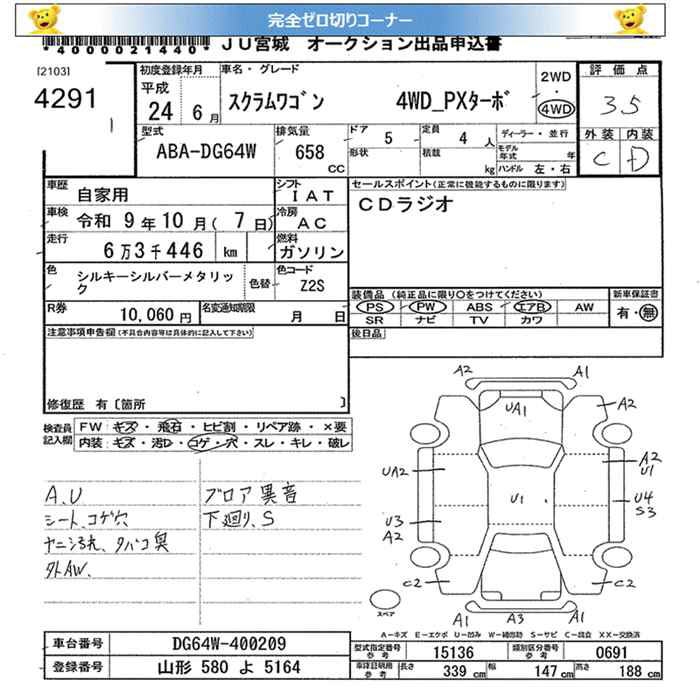 完全ゼロ切りコーナー
*40000021440* JU宮城 オークション出品申込書
[2103]
4291
初度登録年月
平成
24 6月
車名・グレード
スクラムワゴン 4WD_PXターボ
2WD
・
4WD
評価点
3.5
外装 内装
C D
型式
ABA-DG64W
排気量
658
CC
ドア
5
定員
4 人
形状
積載
kg
ディーラー・並行
モデル年式 年
ハンドル 左・右
車歴
自家用
シフト
IAT
車検
令和 9年 10月( 7日)
冷房
AC
走行
6万3千446 km
燃料
ガソリン
色
シルキーシルバーメタリック
色替
色コード
Z2S
R券
10,060 円
名変通知期限
月 日
セールスポイント(正常に機能するものに限ります)
CDラジオ
装備品(純正品に限り○をつけてください)
PS PW ABS エアB AW
SR ナビ TV カワ
新車保証書
有・無
後日品
注意事項申告欄(不具合内容等は具体的に記入して下さい)
修復歴 有〔箇所 〕
検査員記入欄
FW:キズ・飛石・ヒビ割・リペア跡・×要
内装:キズ・汚D・コゲ・穴・スレ・キレ・破レ
A、U
シート、コゲ穴
ヤニヨゴレ、タバコ臭
外AW、
ブロア異音
下廻り、S
A2 A1
UA1
A2
UA2
A2
U1
U1
U3
A2
U4
S3
C2
C2
スペア
A1 A3 A1
A―キズ E―エクボ U―凹み W―補修跡 S―サビ C―腐食 XX―交換済
車台番号
DG64W-400209
登録番号
山形 580 よ 5164
型式指定番号
参考
15136
類別区分番号
参考
0691
車庫証明用
参考
長さ
339 cm
幅
147 cm
高さ
188 cm